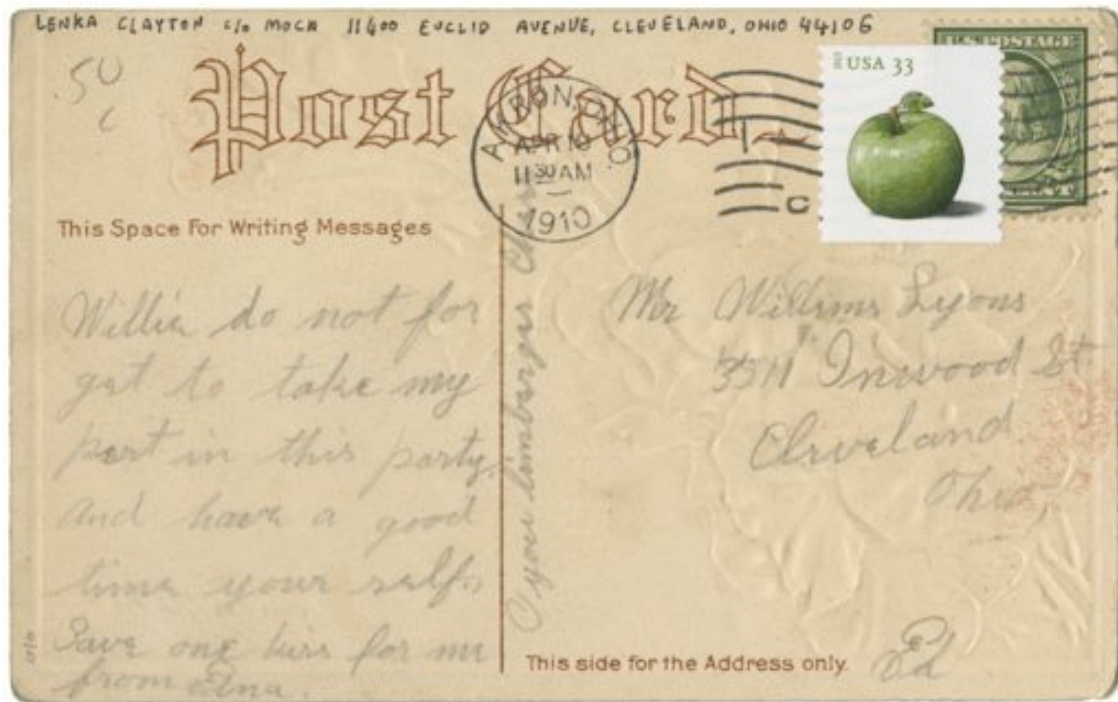 LENKA CLAYTON c/o MOCA 11400 EUCLID AVENUE, CLEVELAND, OHIO 44106
50
c
Post Card.
U.S. POSTAGE
USA 33
AKRON, OHIO.
APR 18
11 30 AM
1910
This Space For Writing Messages
Willie do not for
get to take my
part in this party.
and have a good
time your self.
Save one kiss for me
from Edna.
your
Mr Willims Lyons
3511 Inwood St.
Cleveland
Ohio,
This side for the Address only.
Ed